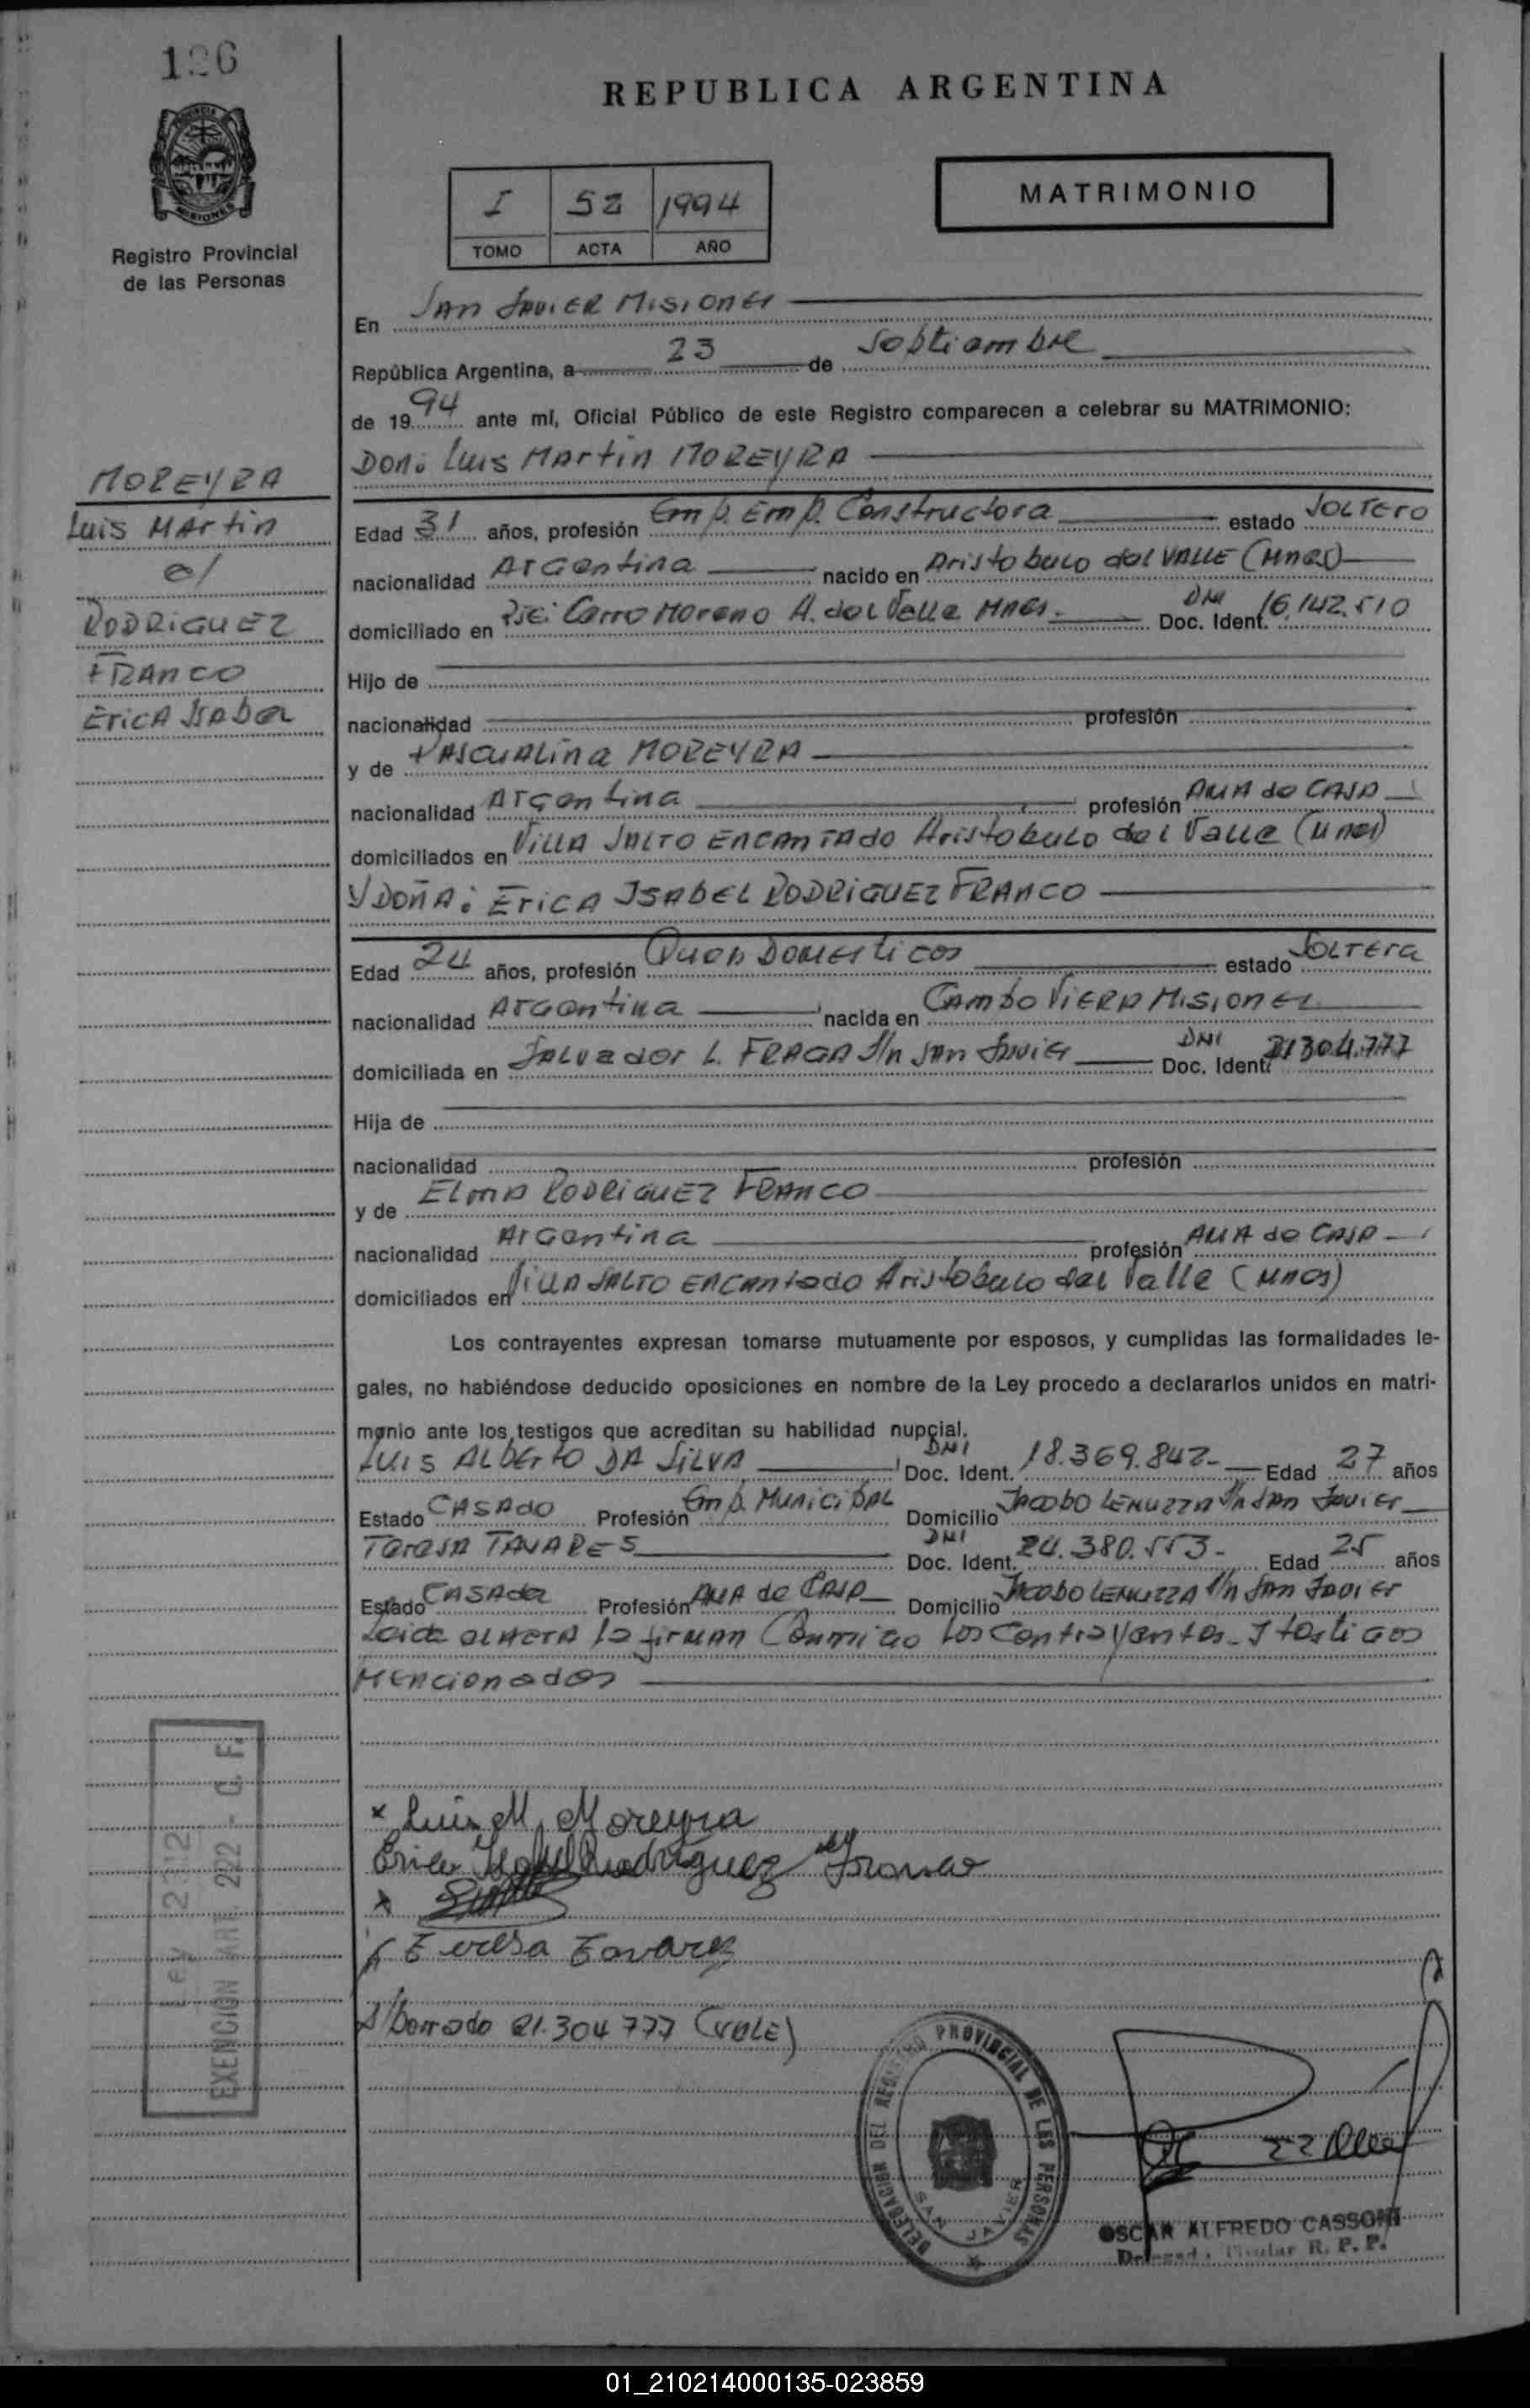 126
REPUBLICA ARGENTINA
MATRIMONIO
I 52 1994
TOMO ACTA AÑO
PROVINCIA DE MISIONES
Registro Provincial
de las Personas
En San Javier Misiones
República Argentina, a 23 de Septiembre
de 1994 ante mí, Oficial Público de este Registro comparecen a celebrar su MATRIMONIO:
Don: Luis Martin MOREYRA
MOREYRA
Luis Martin
c/
RODRIGUEZ
FRANCO
Erica Isabel
Edad 31 años, profesión Emp. Emp. Constructora estado Soltero
nacionalidad Argentina nacido en Aristobulo del VALLE (Mnes)
domiciliado en Pje: Cerro Moreno A. del Valle Mnes. Doc. Ident. DNI 16.142.510
Hijo de
nacionalidad profesión
y de PASCUALina MOREYRA
nacionalidad Argentina profesión AMA de CASA
domiciliados en Villa SALTO ENCANTADO Aristobulo del Valle (Mnes)
Y DOÑA: Erica ISABEL RODRIGUEZ FRANCO
Edad 24 años, profesión Queh Domesticos estado SOLTERA
nacionalidad Argentina nacida en CAMPO VIERA MISIONES
domiciliada en Salvador L. FRAGA S/n San Javier Doc. Ident. DNI 21304.777
Hija de
nacionalidad profesión
y de Elma RODRIGUEZ FRANCO
nacionalidad Argentina profesión AMA de CASA
domiciliados en Villa SALTO ENCANTADO Aristobulo del Valle (Mnes)
Los contrayentes expresan tomarse mutuamente por esposos, y cumplidas las formalidades le-
gales, no habiéndose deducido oposiciones en nombre de la Ley procedo a declararlos unidos en matri-
monio ante los testigos que acreditan su habilidad nupcial.
LUIS ALBERTO DA SILVA Doc. Ident. DNI 18.369.842.- Edad 27 años
Estado CASADO Profesión Emp. Municipal Domicilio Jacobo LEMUZZA S/n San Javier
Teresa TAVARES Doc. Ident. DNI 24.380.553.- Edad 25 años
Estado CASADA Profesión AMA de CASA Domicilio Jacobo LEMUZZA S/n San Javier
Leida el ACTA la firman Conmigo los Contrayentes y testigos
Mencionados
Luis M. Moreyra
Erica Isabel Rodriguez Franco
Teresa Tavares
S/Borrado 21.304777 (VALE)
Ley 2312
EXENCION ART. 222 - C. F.
DELEGACION DEL REGISTRO PROVINCIAL DE LAS PERSONAS
SAN JAVIER
OSCAR ALFREDO CASSONI
Delegado Titular R. P. P.
01_210214000135-023859